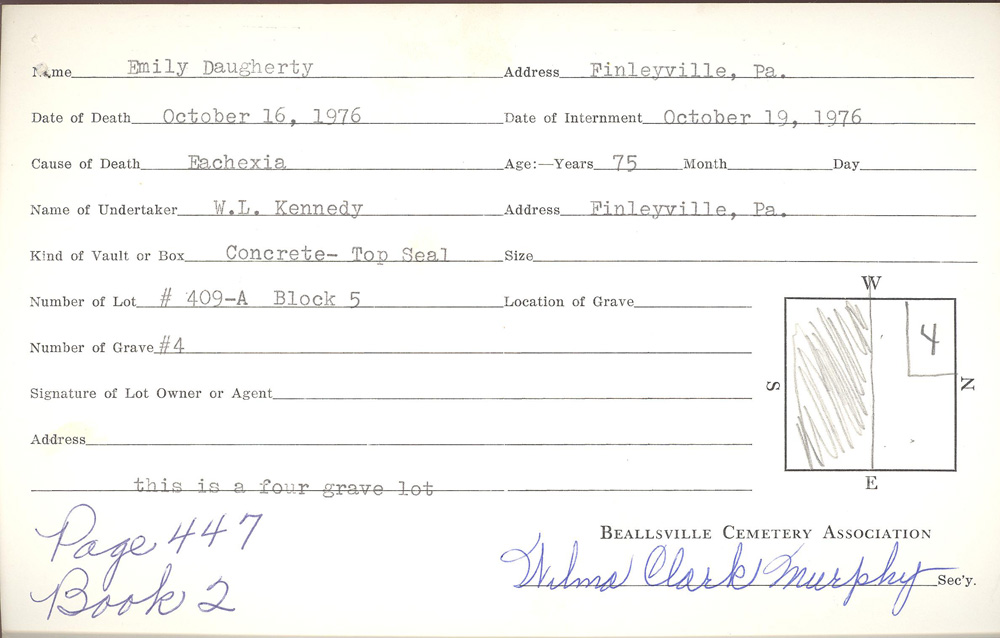 Name Emily Daugherty Address Finleyville, Pa.
Date of Death October 16, 1976 Date of Internment October 19, 1976
Cause of Death Eachexia Age:—Years 75 Month Day
Name of Undertaker W.L. Kennedy Address Finleyville, Pa.
Kind of Vault or Box Concrete- Top Seal Size
Number of Lot # 409-A Block 5 Location of Grave
W
4
Number of Grave #4
S N
Signature of Lot Owner or Agent
Address
E
this is a four grave lot
Page 447
Book 2
BEALLSVILLE CEMETERY ASSOCIATION
Wilma Clark Murphy Sec'y.